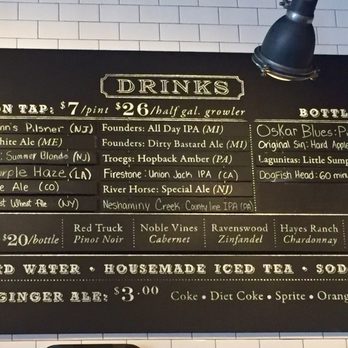 DRINKS
ON TAP: $7/pint $26/half gal. growler
BOTTL
Pilsner (NJ)
Founders: All Day IPA (MI)
Oskar Blues:
White Ale (ME)
Founders: Dirty Bastard Ale (MI)
Original Sin: Hard Apple
Summer Blonde (NJ)
Troegs: Hopback Amber (PA)
Lagunitas: Little Sump
Purple Haze (LA)
Firestone: Union Jack IPA (CA)
DogFish Head: 60 min
Ale (CO)
River Horse: Special Ale (NJ)
Wheat Ale (NY)
Neshaminy Creek County line IPA (PA)
$20/bottle
Red Truck
Pinot Noir
Noble Vines
Cabernet
Ravenswood
Zinfandel
Hayes Ranch
Chardonnay
ED WATER • HOUSEMADE ICED TEA • SOD
GINGER ALE: $3.00
Coke • Diet Coke • Sprite • Orang